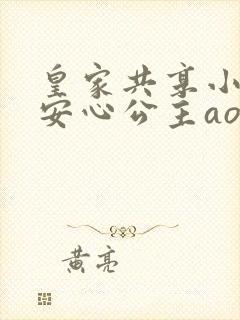 皇家共享小
安心公主ao
黄亮